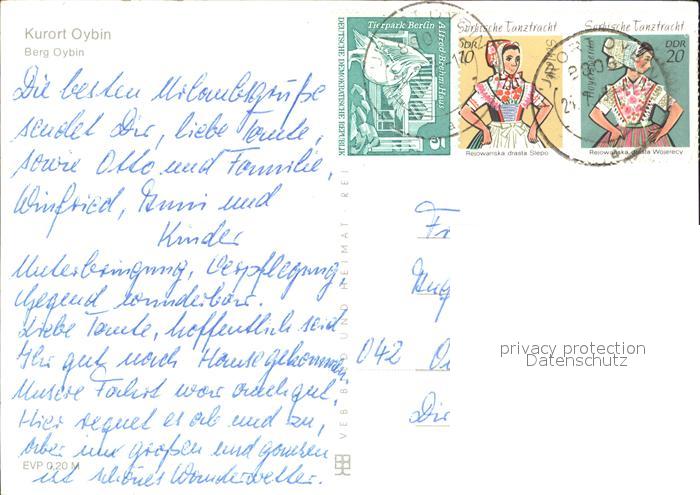 Kurort Oybin
Berg Oybin
Die besten Urlaubsgrüße
sendet Dir, liebe Tante,
sowie Otto und Familie,
Winfried, Anni und
Kinder
Unterbringung, Verpflegung,
Gegend wunderbar.
Liebe Tante, hoffentlich seid
Ihr gut nach Hause gekommen.
Unsere Fahrt war auch gut.
Hier regnet es ab und zu,
aber im großen und ganzen
ist schönes Wanderwetter.
EVP 0,20 M
Tierpark Berlin
Alfred-Brehm-Haus
DEUTSCHE DEMOKRATISCHE REPUBLIK
5
Sorbische Tanztracht
DDR
10
Rejowanska drasta Slepo
Sorbische Tanztracht
DDR
20
Rejowanska drasta Wojerecy
OYBIN
8806
VEB BILD UND HEIMAT · REI
Fr
042
privacy protection
Datenschutz